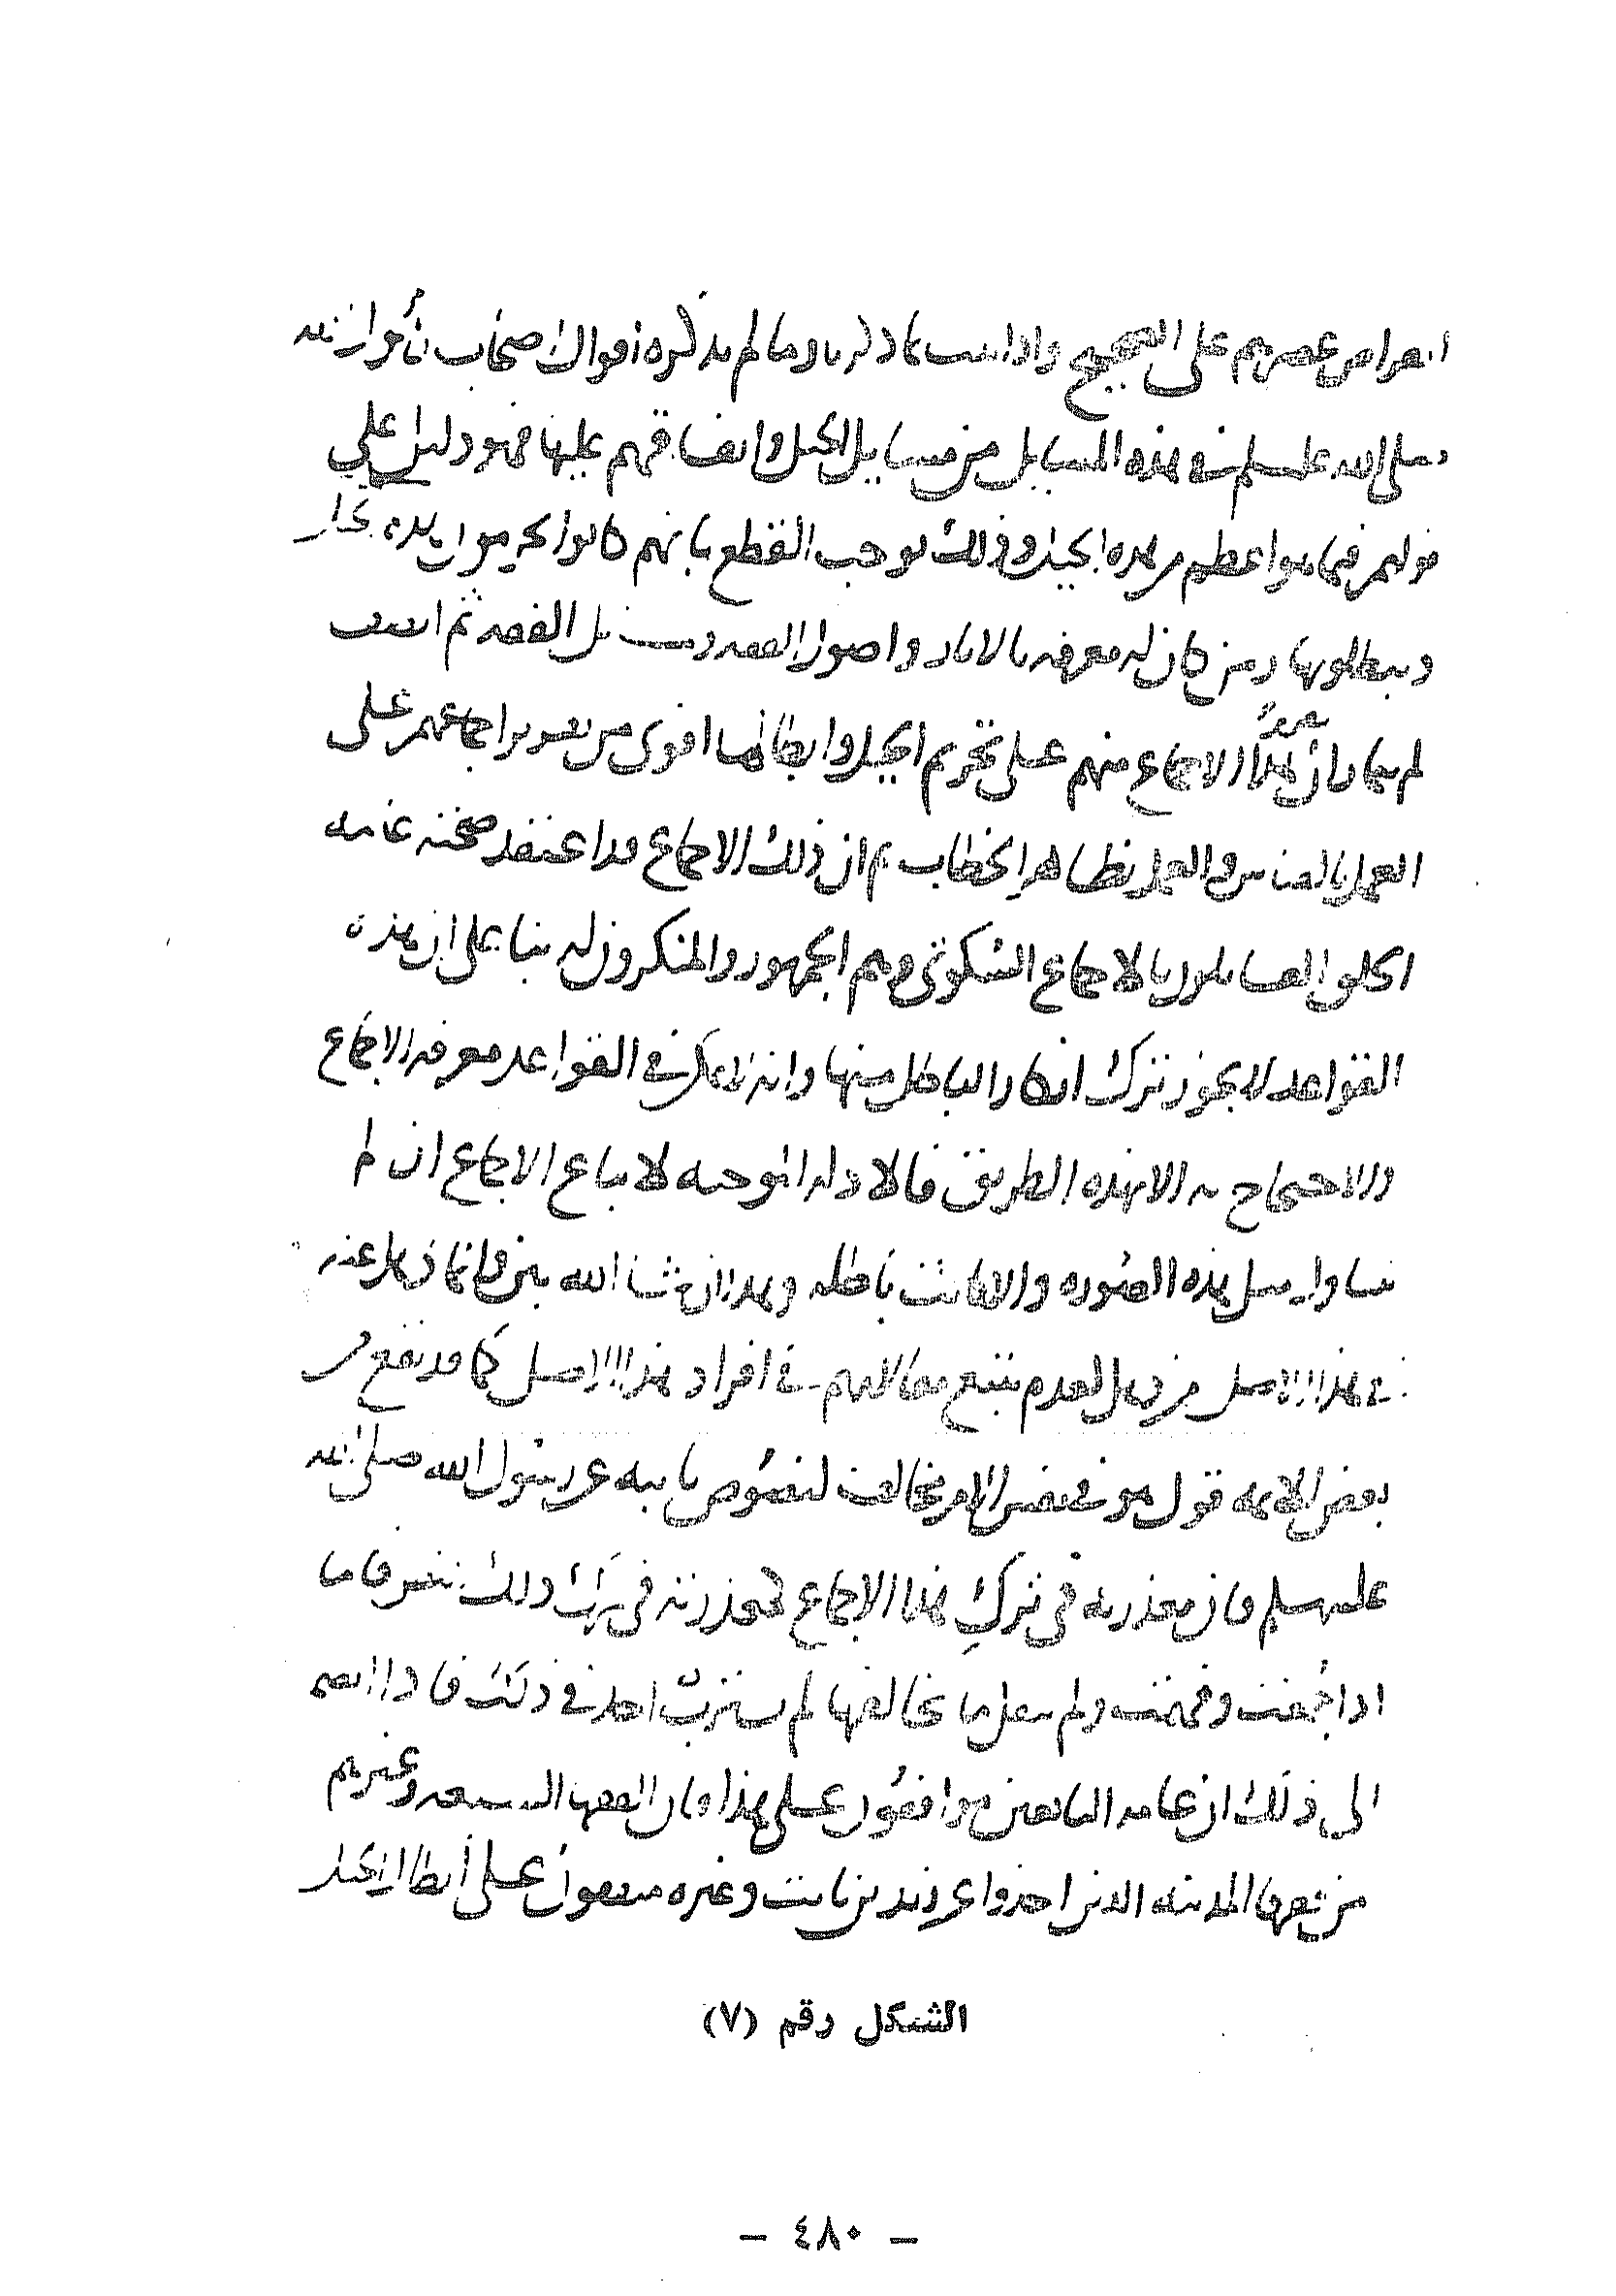 انقراض عصرهم على الصحيح واذا تاملت ما ذكرناه وما لم نذكره اقوال اصحاب رسول الله
صلى الله عليه وسلم في هذه المسايل من مسايل الحيل واتفاقهم عليها فهو دليل على
قولهم فيما هو اعظم من هذه الحيل وذلك يوجب القطع بانهم كانوا يحرمون هذه الحيل
ويبطلونها ومن كان له معرفه بالاثار واصول الفقه ومسايل الفقه ثم انصف
لم يتمار ان تقرير هذا الاجماع منهم على تحريم الحيل وابطالها اقوى من تقرير اجماعهم على
العمل بالقياس والعمل بظاهر الخطاب ثم ان ذلك الاجماع قد اعتقد صحته عامه
الخلق القايلون بالاجماع السكوتي وهم الجمهور والمنكرون له بنا على ان هذه
القواعد لا يجوز ترك انكار الباطل منها وانه لا يمكن في القواعد معرفه الاجماع
والاحتجاج به الا بهذه الطريق فالادله الموجبه لاتباع الاجماع ان لم
تتناول مثل هذه الصوره والا كانت باطله وهذا ان شا الله بين وانما ذهل عنه
في هذا الاصل من ذهل لعدم تتبع مقالاتهم في افراد هذا الاصل كما قد يقع من
بعض الايمه قول هو في نفس الامر مخالف لنصوص ثابته عن رسول الله صلى الله
عليه وسلم فان معذرته في ترك هذا الاجماع كمعذرته في ترك ذلك النصوص فاما
اذا جمعت وفهمت ولم ينقل ما يخالفها لم يسترب احد في ذلك فاذا انضم
الى ذلك ان عامه التابعين موافقون على هذا فان الفقها السبعه وغيرهم
من فقها المدينه الذين اخذوا عن زيد بن ثابت وغيره متفقون على ابطال الحيل
الشكل رقم (٧)
- ٤٨٠ -